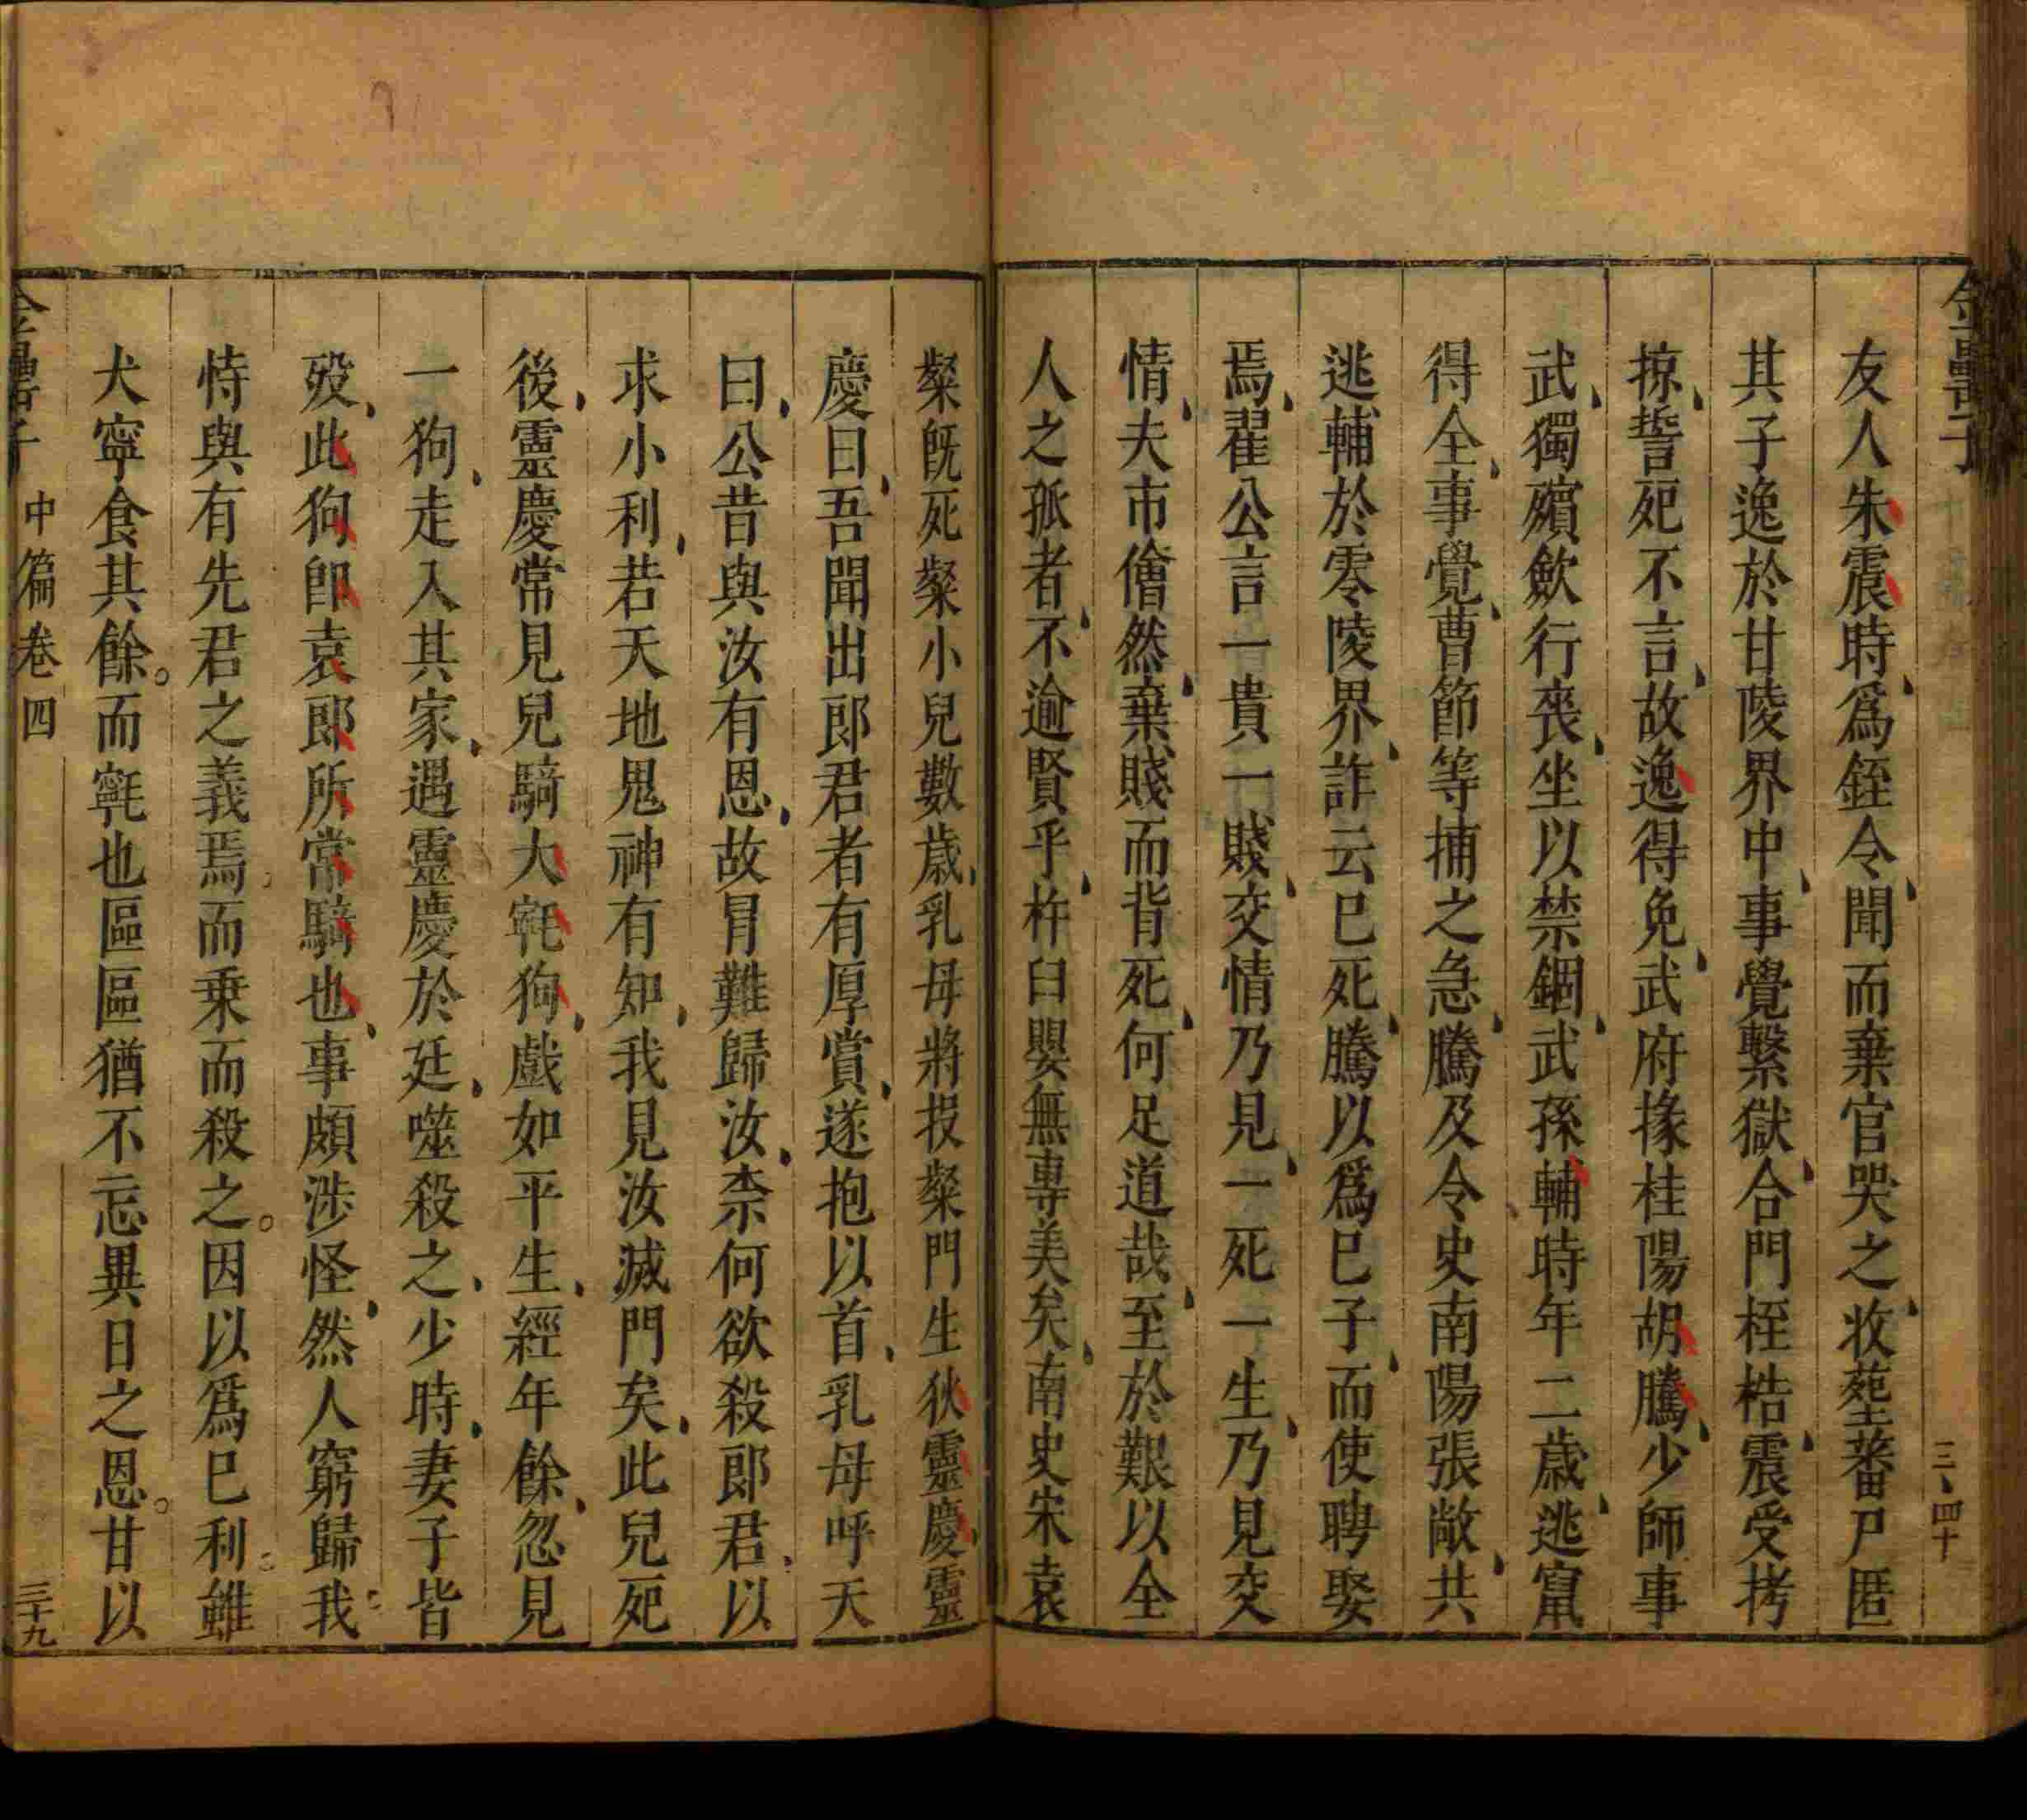 金罍子
三、四十
友人朱震時爲銍令聞而棄官哭之收𦵏蕃尸匿
其子逸於甘陵界中事覺繫獄合門桎梏震受拷
掠誓死不言故逸得免武府掾桂陽胡騰少師事
武獨殯歛行喪坐以禁錮武孫輔時年二歲逃竄
得全事覺曹節等捕之急騰及令史南陽張敞共
逃輔於零陵界詐云已死騰以爲已子而使聘娶
焉翟公言一貴一賤交情乃見一死一生乃見交
情夫市儈然棄賤而背死何足道哉至於艱以全
人之孤者不逾賢乎杵臼嬰無專美矣南史宋袁
粲旣死粲小兒數歲乳母將投粲門生狄靈慶靈
慶曰吾聞出郎君者有厚賞遂抱以首乳母呼天
曰公昔與汝有恩故冐難歸汝柰何欲殺郎君以
求小利若天地鬼神有知我見汝滅門矣此兒死
後靈慶常見兒騎大㲦狗戲如平生經年餘忽見
一狗走入其家遇靈慶於廷噬殺之少時妻子皆
歿此狗卽袁郎所常騎也事頗涉怪然人窮歸我
恃與有先君之義焉而乗而殺之因以爲已利雖
犬寧食其餘而㲦也區區猶不忘異日之恩甘以
金罍子
中篇卷四
三十九